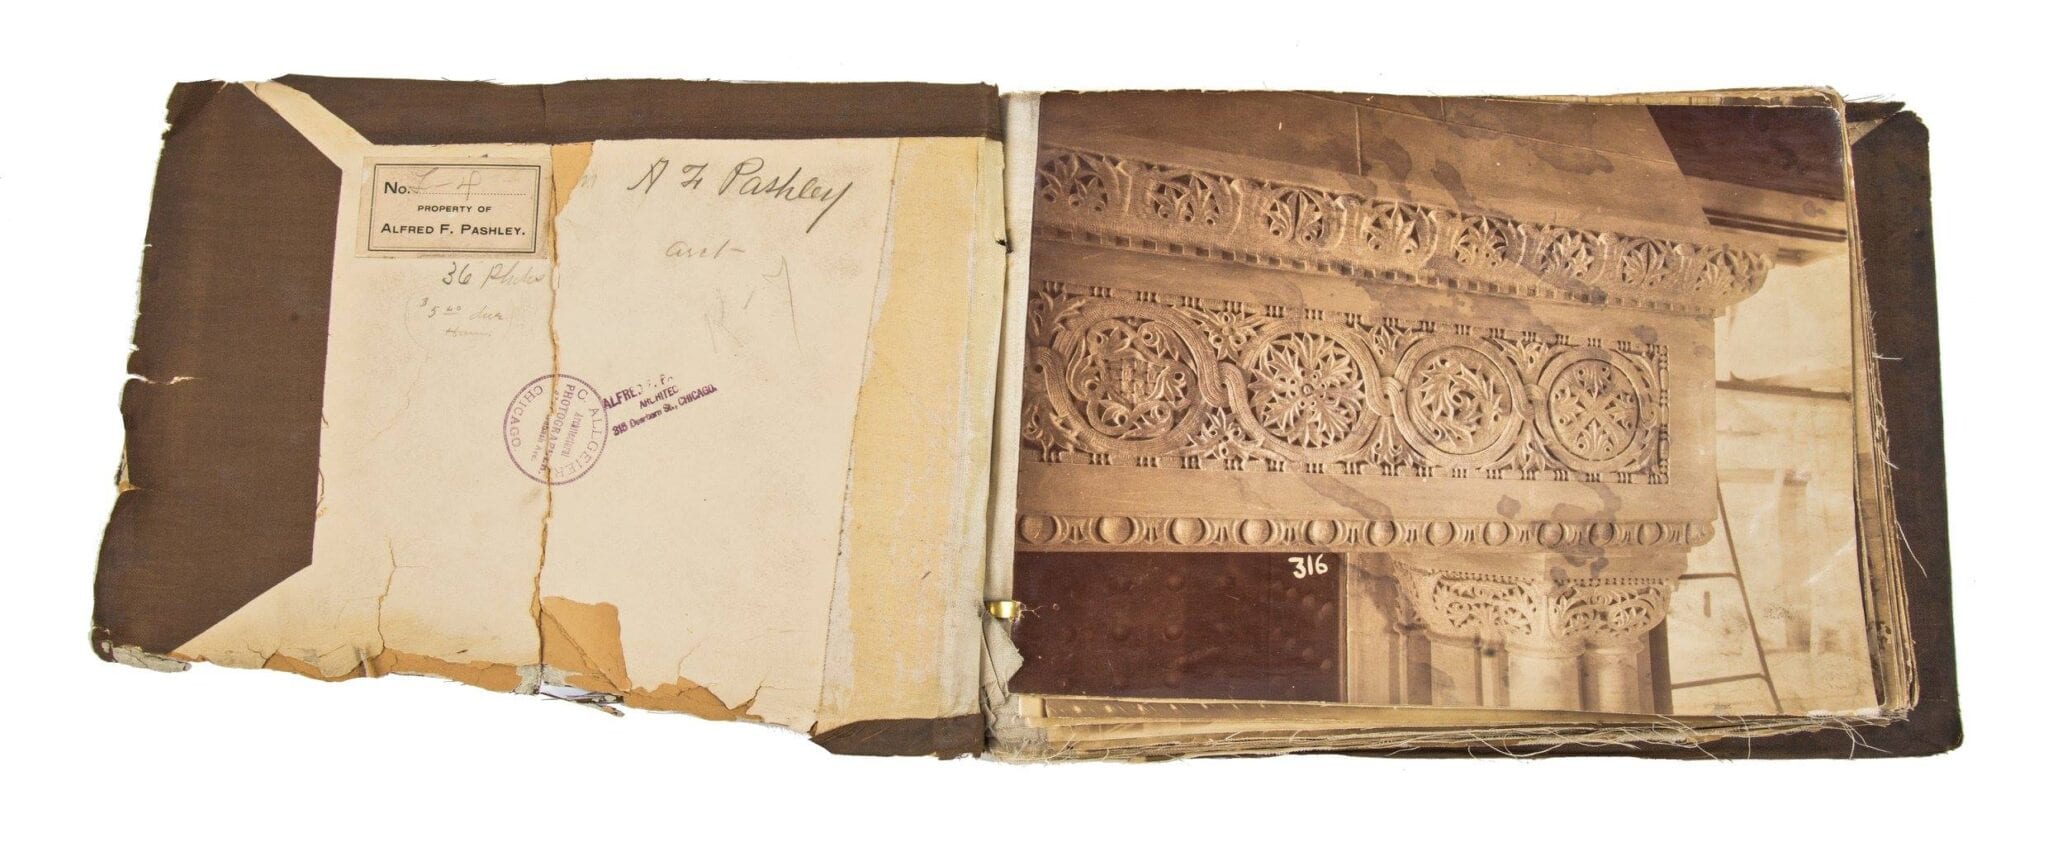 No. L-4
PROPERTY OF
ALFRED F. PASHLEY.
36 Photos
$5.00 due
A F Pashley
arct
C. ALLGEIER
Architectural
PHOTOGRAPHER
CHICAGO
ALFRED F. PA
ARCHITEC
315 Dearborn St., CHICAGO.
316